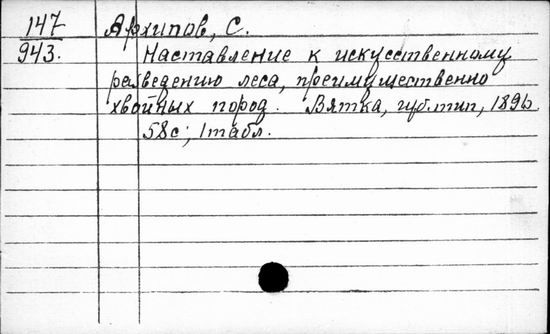 147 Архипов, С.
943. Наставление к искусственному
разведению леса, преимущественно
хвойных пород. Вятка, губ. тип, 1896.
58с; 1 табл.